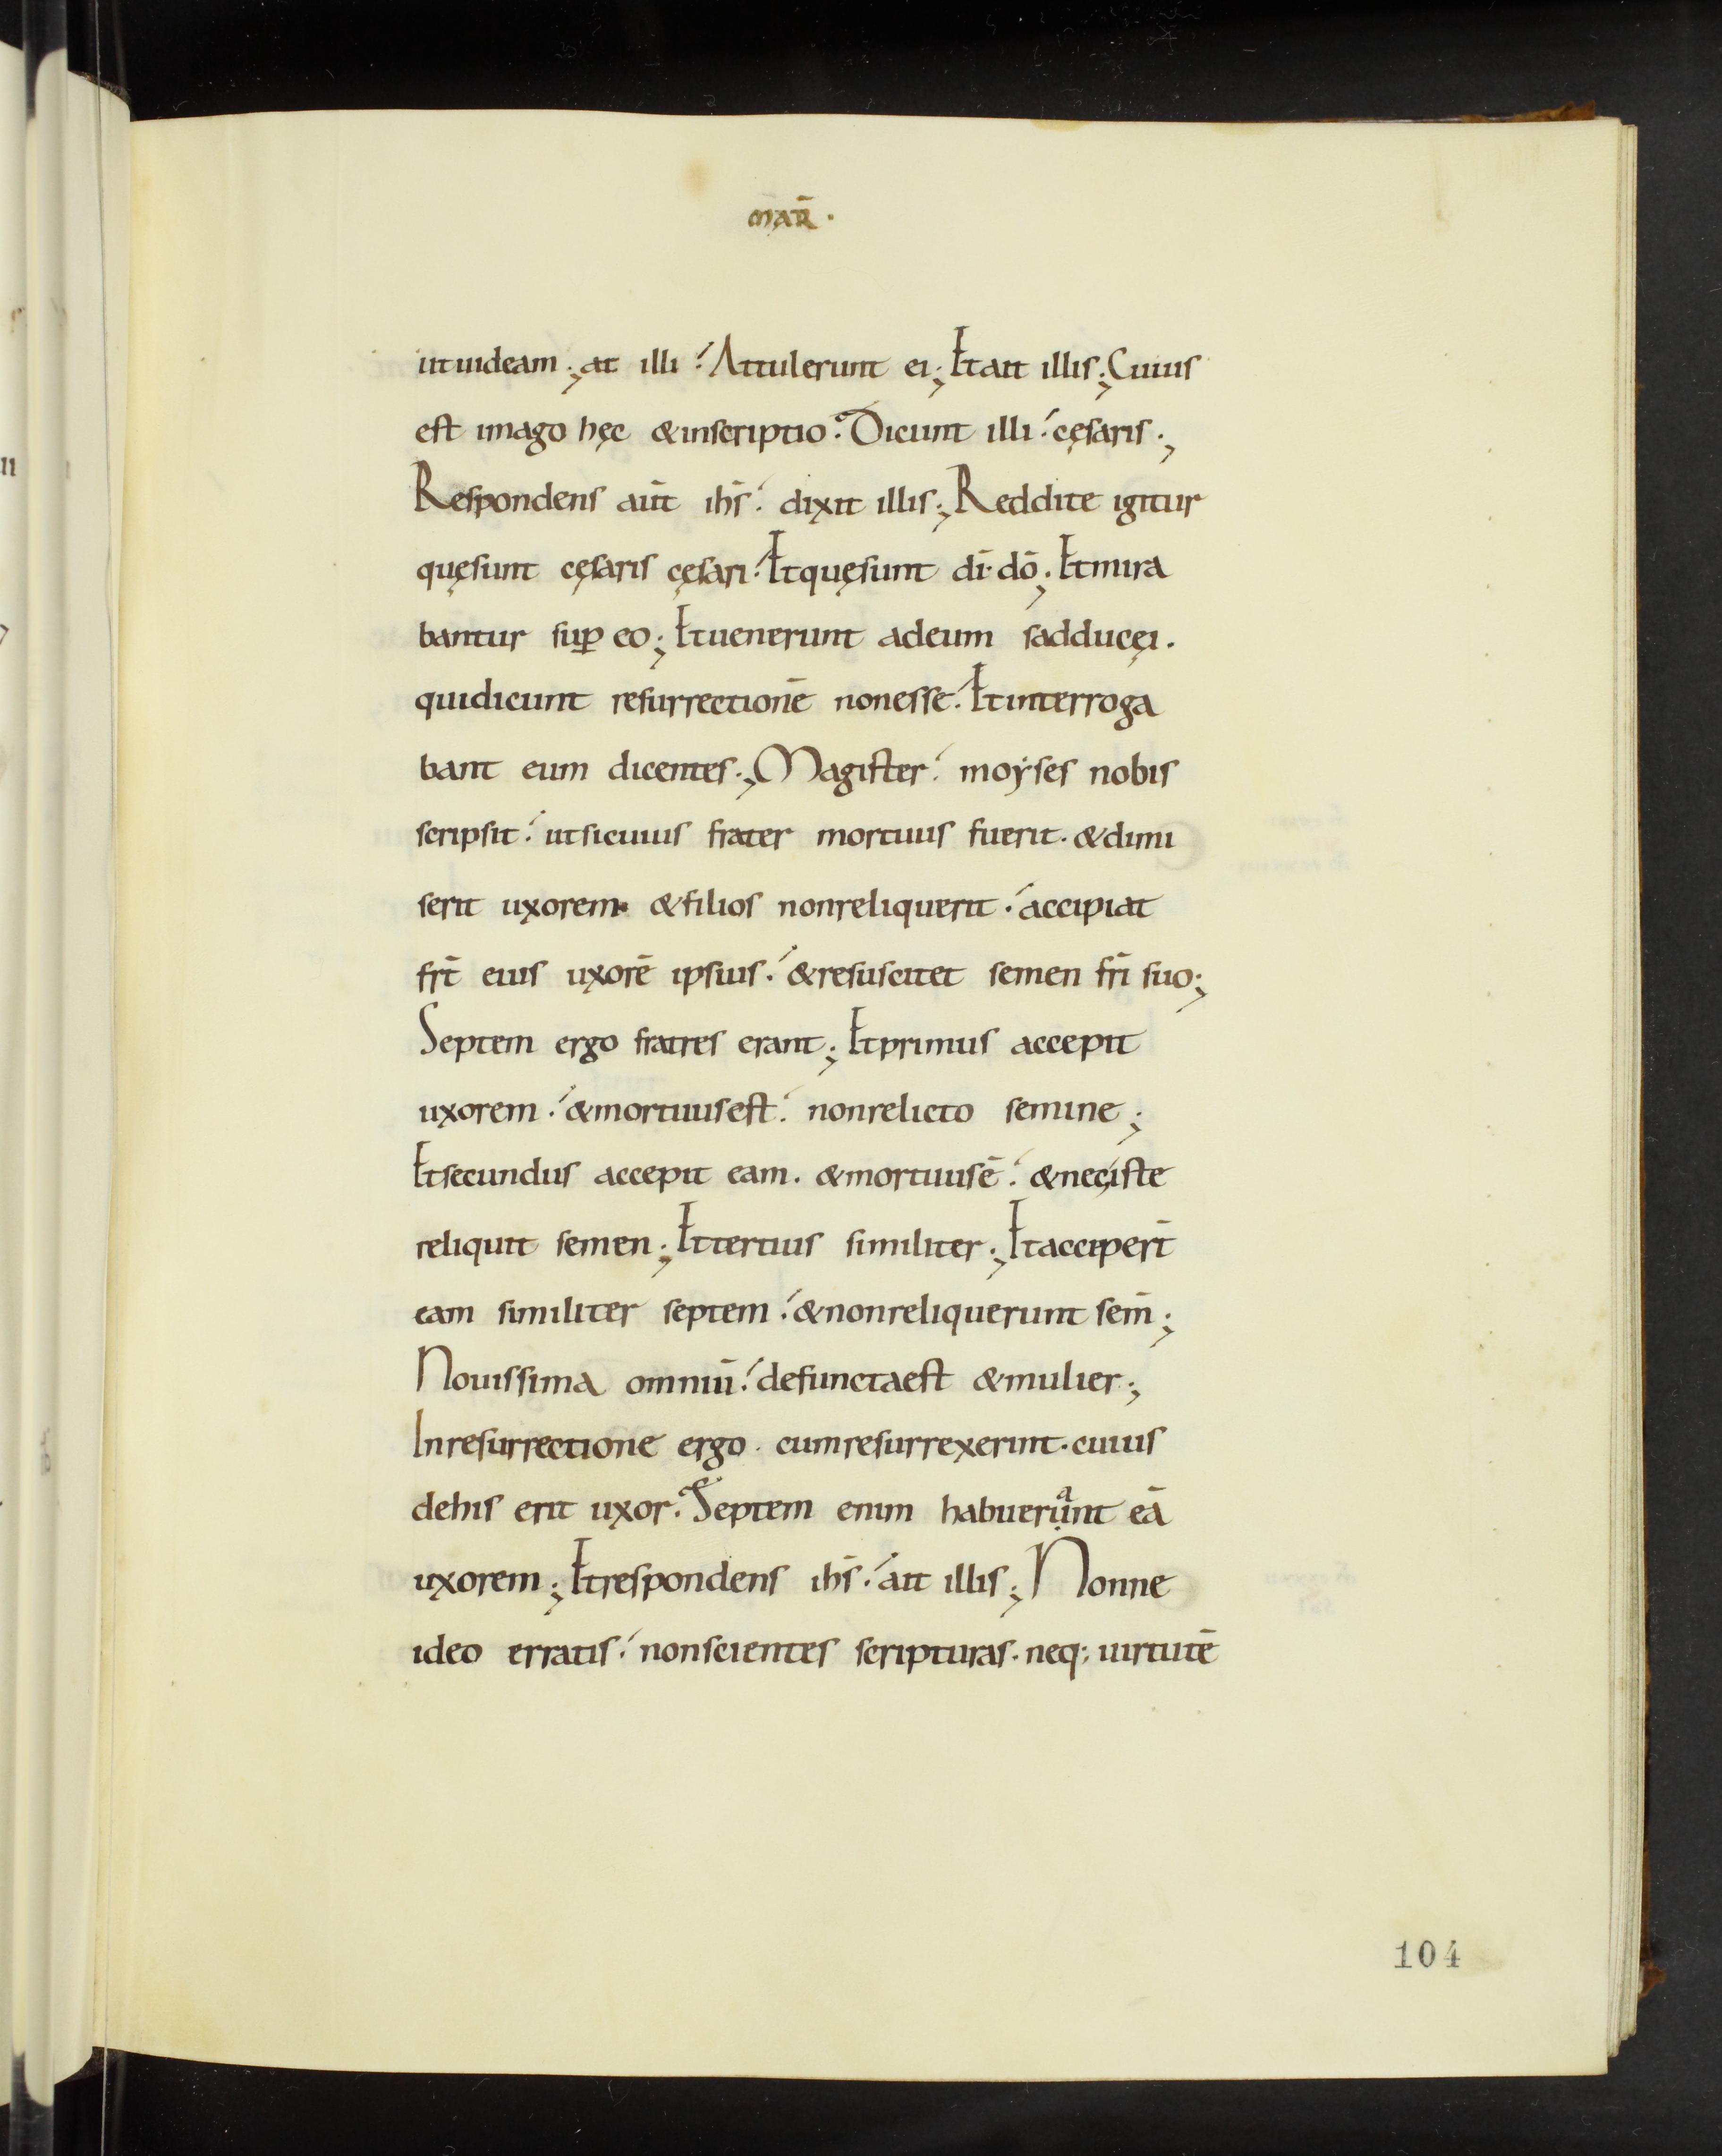 MAR̄.
ut uideam; at illi: Attulerunt ei; Et ait illis; Cuius
est imago hęc & inscriptio? Dicunt illi: cęsaris;
Respondens aūt ih̄s: dixit illis; Reddite igitur
quęsunt cęsaris cęsari: Et quęsunt dī. dō; Et mira
bantur suꝑ eo; Et uenerunt ad eum sadducęi.
qui dicunt resurrectionē non esse: Et interroga
bant eum dicentes; Magister: moẏses nobis
scripsit: ut si cuius frater mortuus fuerit. & dimi
serit uxorem. & filios non reliquerit: accipiat
fr̄t eius uxorē ipsius: & resuscitet semen fr̄i suo;
Septem ergo fratres erant; Et primus accepit
uxorem: & mortuus est: non relicto semine;
Et secundus accepit eam. & mortuus ē: & nec iste
reliquit semen; Et tertius similiter; Et acceper̄t
eam similiter septem: & non reliquerunt sem̄;
Nouissima omniū: defuncta est & mulier;
In resurrectione ergo. cum resurrexerint. cuius
de his erit uxor? Septem enim habuerụᵃnt eā
uxorem; Et respondens ih̄s: ait illis; Nonne
ideo erratis: non scientes scripturas. neq; uirtutē
104